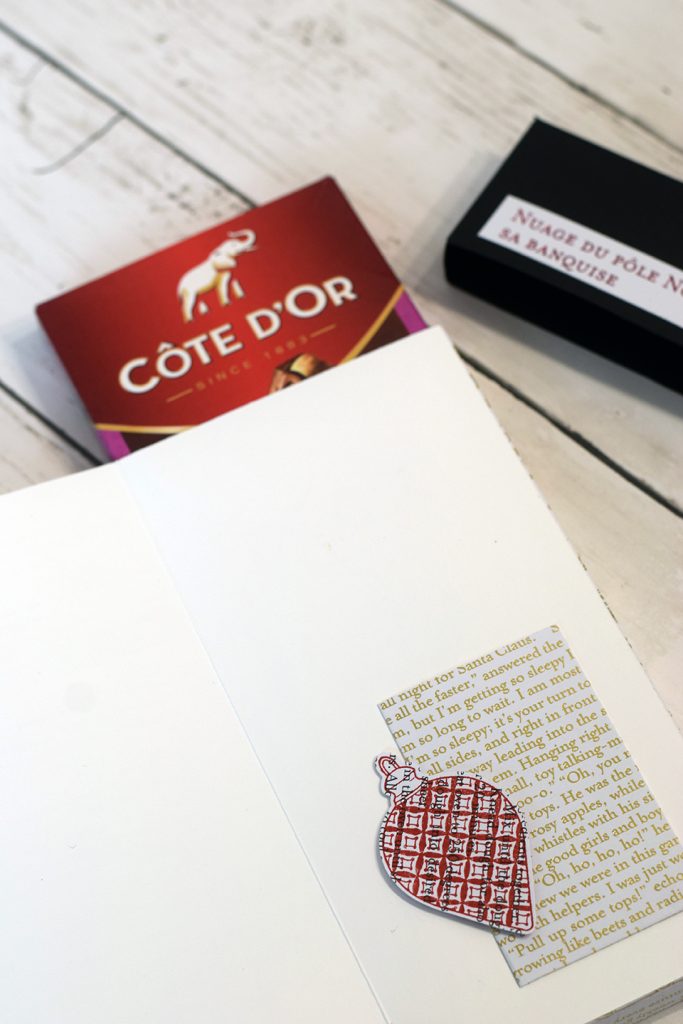 CÔTE D'OR
SINCE 1883
NUAGE DU PÔLE
SA BANQUISE
all night for Santa Claus.
all the faster," answered the
but I'm getting so sleepy I
so long to wait. I am most
so sleepy; it's your turn to
all sides, and right in front
way leading into the
Hanging right
toy talking
"Oh, you
toys. He was the
rosy apples, while
whistles with his
good girls and boy
"Oh, ho, ho, ho!" he
we were in this gar
helpers. I was just
"Pull up some tops!" echo
rowing like beets and radi